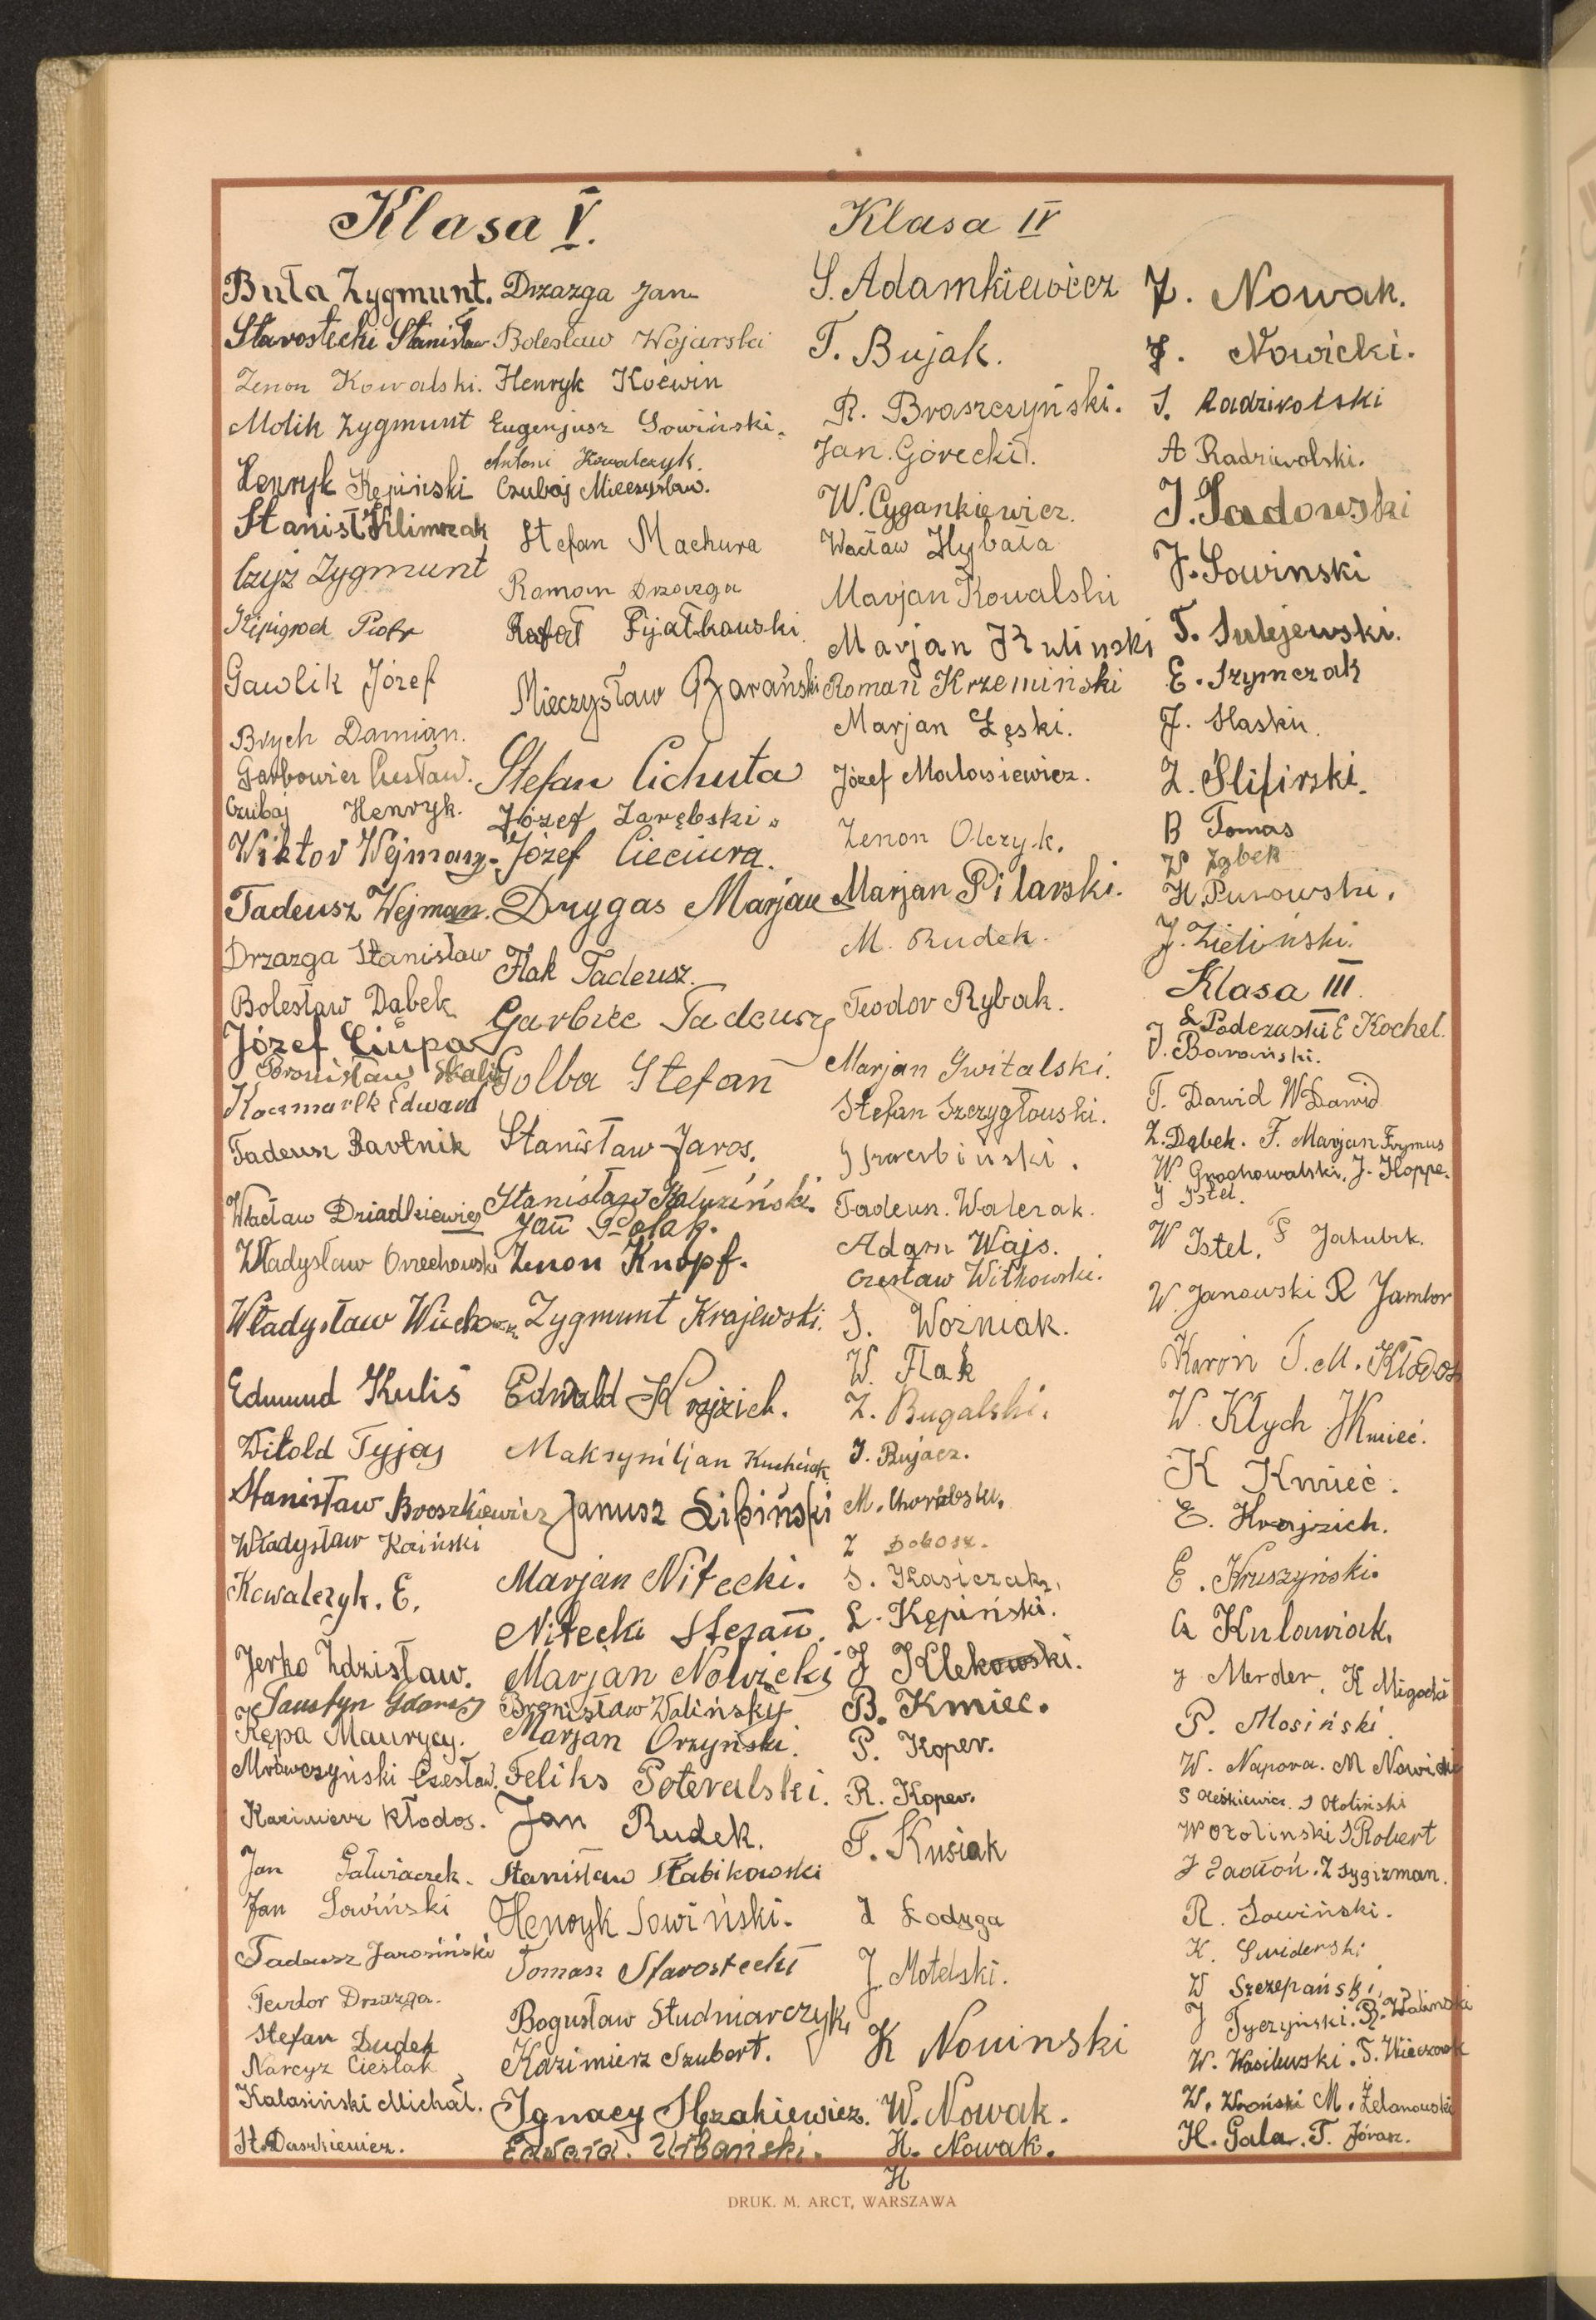 Klasa V.
Buła Zygmunt.
Starostecki Stanisław
Zenon Kowalski.
Molik Zygmunt
Henryk Kępiński
Stanisł Klimczak
Czyż Zygmunt
Piotr
Gawlik Józef
Brych Damian.
Garbowicz Czesław.
Czubaj Henryk.
Wiktor Wejman.
Tadeusz Wejman.
Drzazga Stanisław
Bolesław Dąbek
Józef Ciupa
Bronisław Skalik
Kaczmarek Edward
Tadeusz Bartnik
Wacław Dziadkiewicz
Władysław Orzechowski
Władysław
Edmund Kuliś
Witold Tyjas
Stanisław Broszkiewicz
Władysław Kaiński
Kowalczyk. E.
Jerko Zdzisław.
Faustyn
Kępa Maurycy.
Mrówczyński Czesław.
Kazimierz Kłodos.
Jan
Jan Sowiński
Tadeusz Jarosiński
Teodor Drzazga.
Stefan Dudek
Narcyz Cieślak
Kalasiński Michał.
St. Daszkiewicz.
Drzazga Jan
Bolesław Wojarski
Henryk Koćwin
Eugenjusz Sowiński.
Antoni Kowalczyk.
Czubaj Mieczysław.
Stefan Machura
Roman Drzazga
Rafał Fijałkowski.
Mieczysław Barański
Stefan Cichuta
Józef Zarębski.
Józef Cieciura.
Drygas Marjan
Flak Tadeusz.
Garbiec Tadeusz
Golba Stefan
Stanisław Jaros.
Stanisław Kałuziński.
Jan Polak.
Zenon Knopf.
Zygmunt Krajewski.
Edwald Krajzich.
Maksymiljan Kuchciak
Janusz Lipiński
Marjan Nitecki.
Nitecki Stefan.
Marjan Nowicki
Bronisław Woliński
Marjan Orzyński.
Feliks Poteralski.
Jan Rudek.
Stanisław Słabikowski
Henryk Sowiński.
Tomasz Starostecki
Bogusław Studniarczyk.
Kazimierz Szubert.
Ignacy Skrzakiewicz.
Edward Urbański.
Klasa IV
S. Adamkiewicz
T. Bujak.
R. Braszczyński.
Jan Górecki.
W. Cygankiewicz.
Wacław Hybała
Marjan Kowalski
Marjan Kuliński
Roman Krzemiński
Marjan Łęski.
Józef Matasiewicz.
Zenon Olczyk.
Marjan Pilarski.
M. Rudek.
Teodor Rybak.
Marjan Świtalski.
Stefan Szczygłowski.
Tadeusz. Walczak.
Adam Wajs.
Czesław Witkowski.
S. Woźniak.
W. Flak
Z. Bugalski.
J. Bujacz.
M. Chorąbski.
Z Dobosz.
S. Kasiczak,
L. Kępiński.
J Klekowski.
B. Kmiec.
P. Koper.
R. Koper.
T. Kusiak
J Łodyga
J. Motelski.
K Nowinski
W. Nowak.
H. Nowak.
H
Z. Nowak.
J. Nowicki.
S. Radziwolski
A Radziwolski.
J. Sadowski
J. Sowinski
T. Sulejewski.
E. Szymczak
J. Slaski
Z. Ślifirski.
B Tomas
W Ząbek
H. Purowski.
J. Zieliński.
Klasa III.
L Podczaski E Kochel.
J. Barański.
T. Dawid W Dawid
Z. Dąbek. F. Marjan Frymus
W. Grochowalski. J. Hoppe.
J Istel.
W Istel. F Jakubek.
W. Janowski R Jambor
Karoń T. M. Kłodos
W. Kłych J Kmieć.
K Kmieć.
E. Krajzich.
E. Kruszyński.
Cz Kulawiak.
J Merder. K Migocki
P. Mosiński
W. Napora. M Nowicki
S Oleśkiewicz. J Otoliński
W Otolinski J Robert
R. Sowiński.
K. Swiderski
W Szczepański.
J Tyczyński. R. Walinski
W. Wasilewski. T. Wieczorek
W. Wroński M. Żelanowski
H. Gala. T. Jórasz.
DRUK. M. ARCT, WARSZAWA